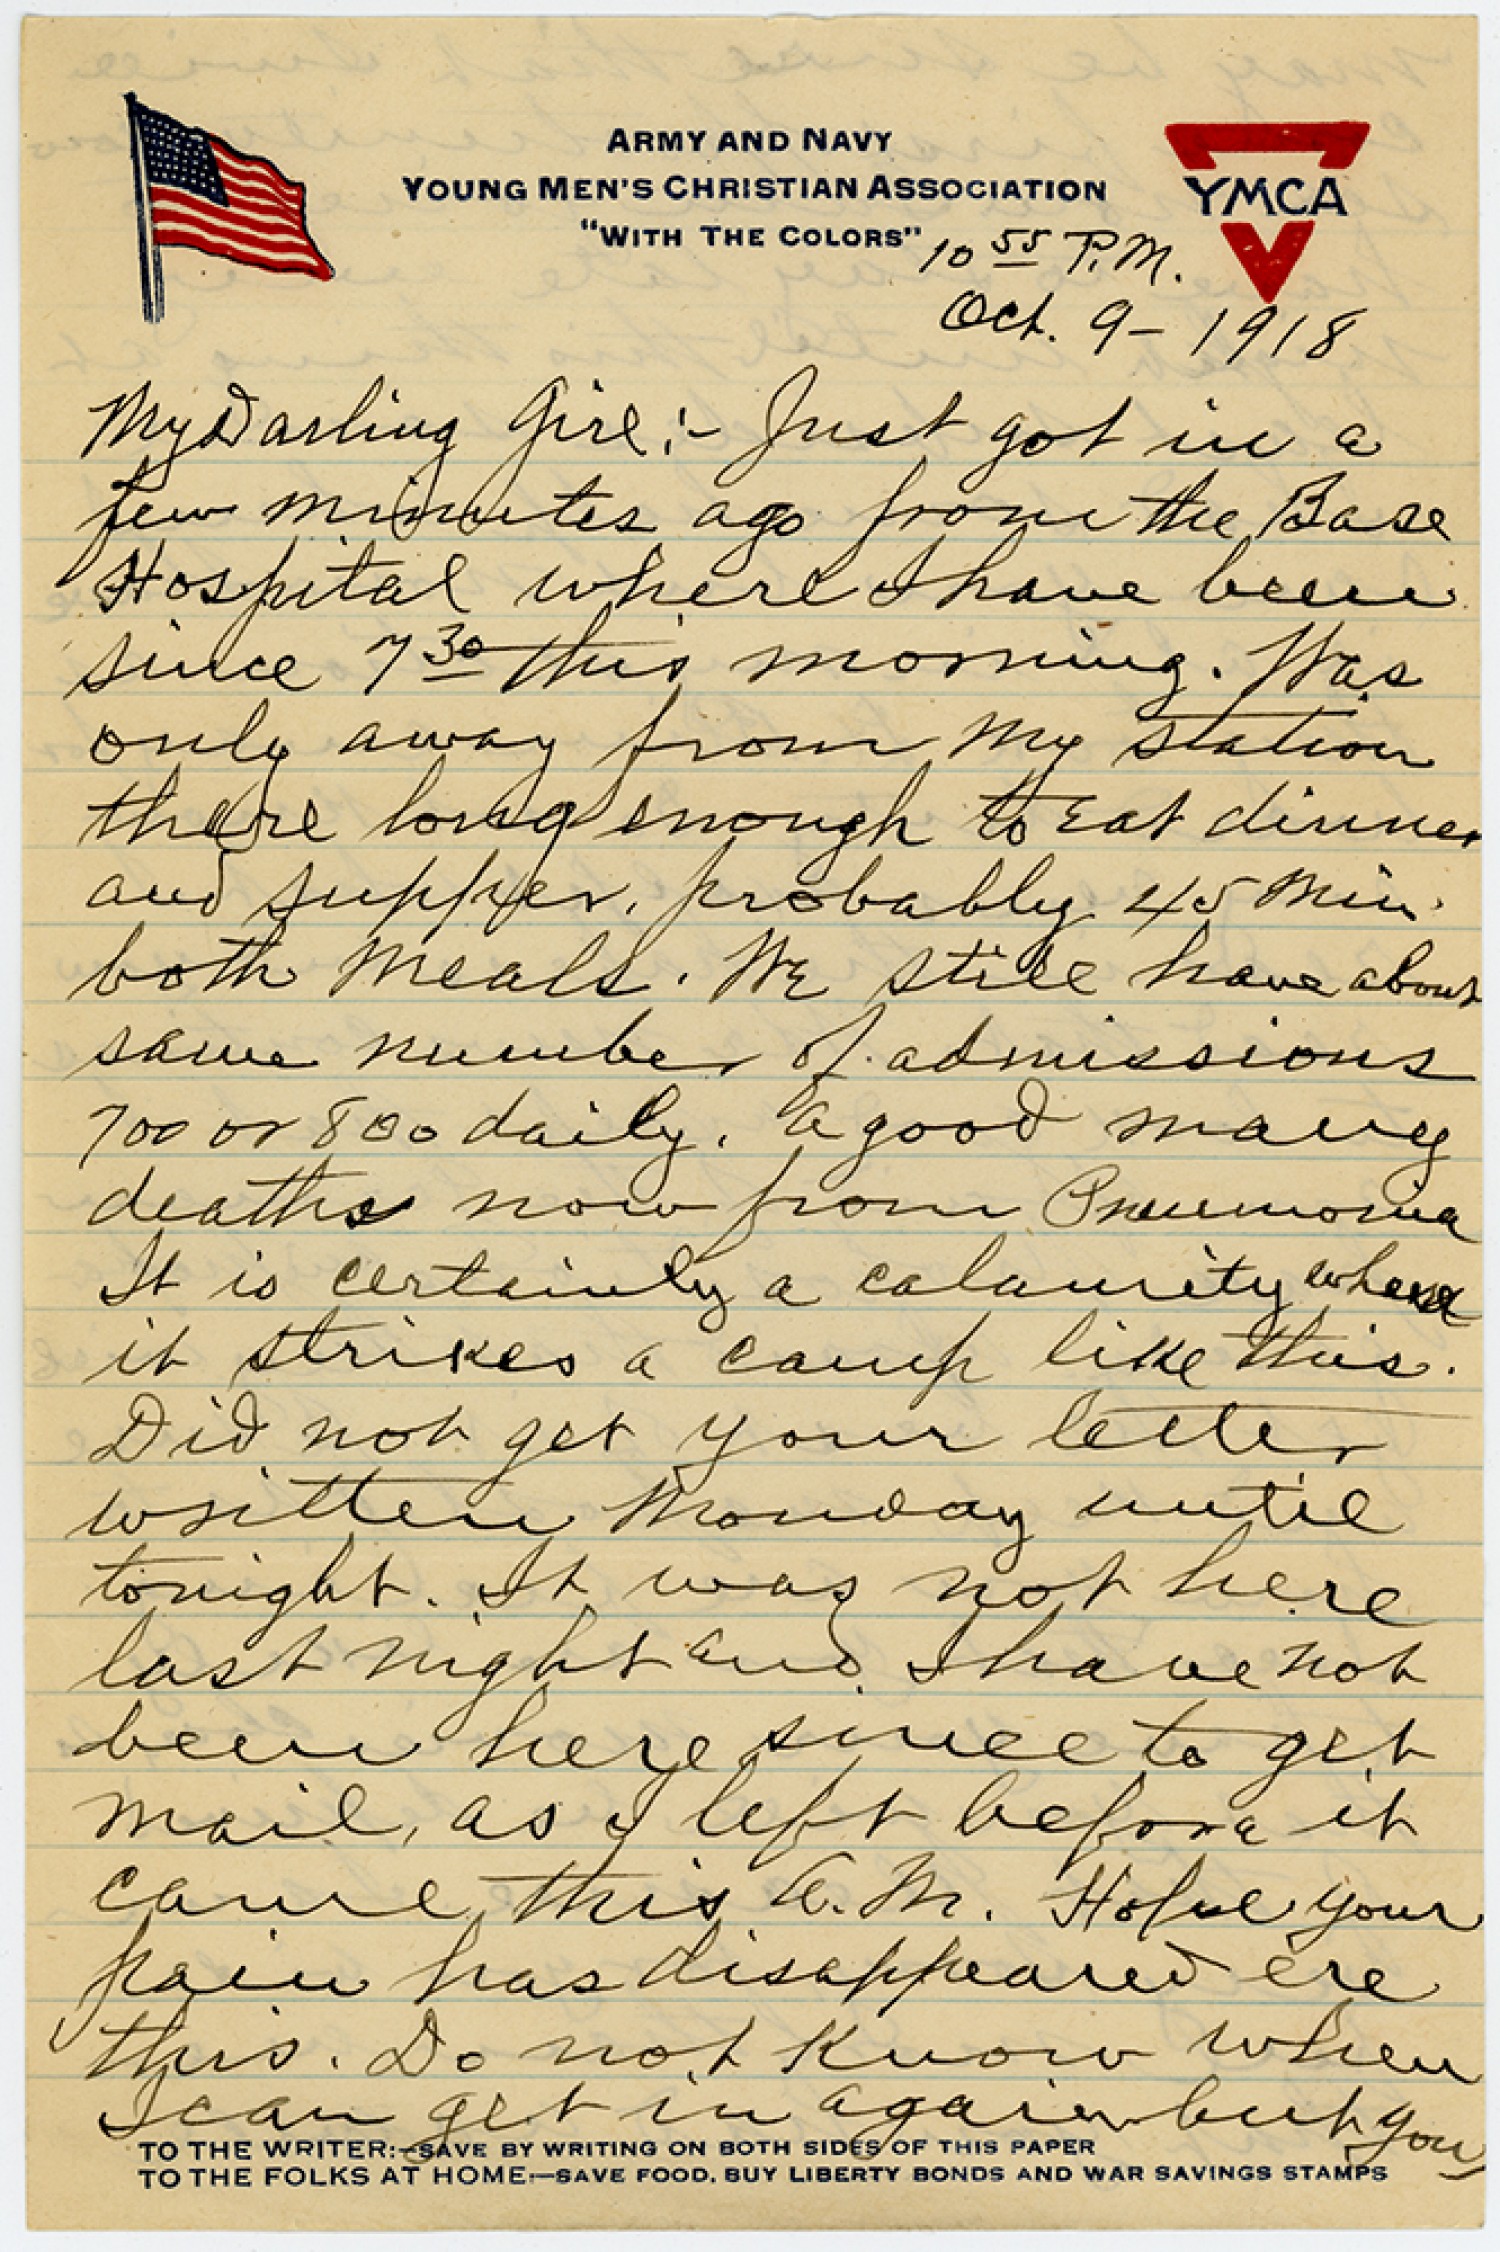 ARMY AND NAVY
YOUNG MEN'S CHRISTIAN ASSOCIATION
"WITH THE COLORS"
YMCA
10 55 P.M.
Oct. 9 - 1918
My Darling Girl:- Just got in a
few minutes ago from the Base
Hospital where I have been
since 7 30 this morning. Was
only away from my station
there long enough to eat dinner
and supper, probably 45 min.
both meals. We still have about
same number of admissions
700 or 800 daily. A good many
deaths now from Pneumonia
It is certainly a calamity when
it strikes a camp like this.
Did not get your letter
written Monday until
tonight. It was not here
last night and I have not
been here since to get
mail, as I left before it
came this A.M. Hope your
pain has disappeared ere
this. Do not know when
I can get in again but you
TO THE WRITER:—SAVE BY WRITING ON BOTH SIDES OF THIS PAPER
TO THE FOLKS AT HOME:—SAVE FOOD, BUY LIBERTY BONDS AND WAR SAVINGS STAMPS